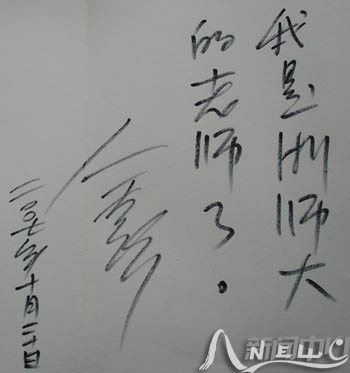 我是浙师大
的老师了。
二〇〇七年十月二十日
新闻中心
NEWC